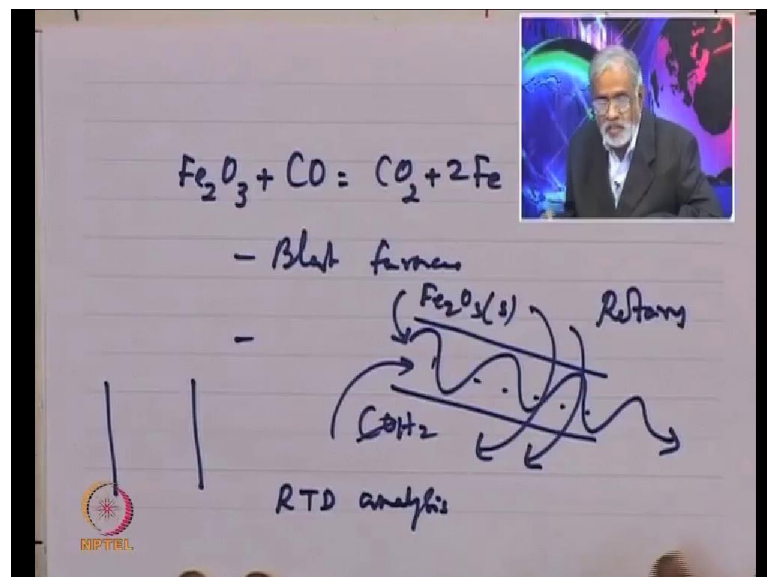 Fe2O3 + CO = CO2 + 2Fe
- Blast furnace
Fe2O3(s)
Rotary
-
H2
RTD analysis
NPTEL